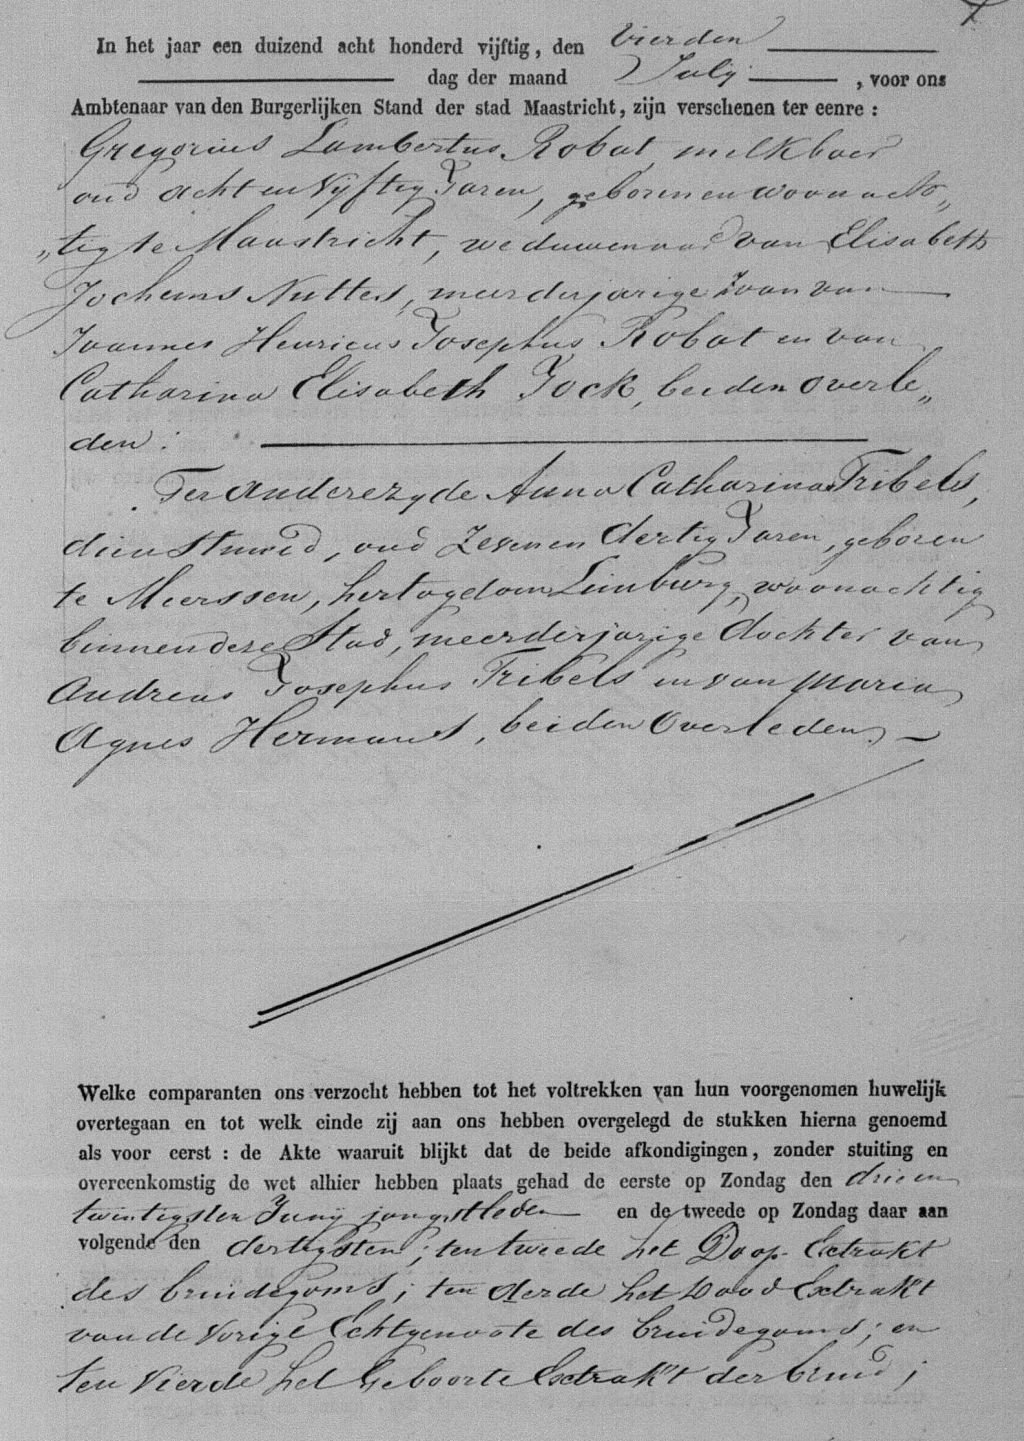 In het jaar een duizend acht honderd vijftig, den Vierden
dag der maand July, voor ons
Ambtenaar van den Burgerlijken Stand der stad Maastricht, zijn verschenen ter eenre :
Gregorius Lambertus Robat, melkboer
oud acht en Vyftig Jaren, geboren en woonach„
„tig te Maastricht, weduwenaar van Elisabeth
Jochems Nuttes, meerderjarige Zoon van
Joannes Henricus Josephus Robat en van
Catharina Elisabeth Jock, beiden overle„
den :
Ter anderezyde Anna Catharina Fribels,
dienstmeid, oud Zeven en dertig Jaren, geboren
te Meerssen, hertogdom Limburg, woonachtig
binnen deze Stad, meerderjarige dochter van
Andreas Josephus Fribels en van Maria
Agnes Hermans, beiden Overleden.
Welke comparanten ons verzocht hebben tot het voltrekken van hun voorgenomen huwelijk
overtegaan en tot welk einde zij aan ons hebben overgelegd de stukken hierna genoemd
als voor eerst : de Akte waaruit blijkt dat de beide afkondigingen, zonder stuiting en
overeenkomstig de wet alhier hebben plaats gehad de eerste op Zondag den drie en
twintigsten Junij jongstleden en de tweede op Zondag daar aan
volgende den dertigsten ; ten tweede het Doop- Extrakt
des bruidegoms ; ten derde het Dood Extrakt
van de Vorige Echtgenoote des bruidegoms ; en
ten Vierde het Geboorte Extrakt der bruid ;